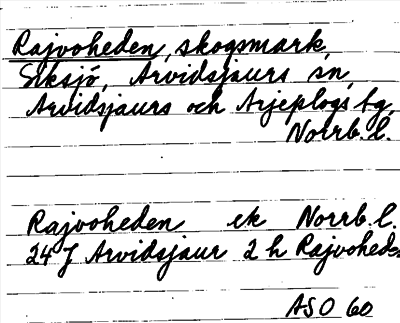 Rajvoheden, skogsmark,
Siksjö, Arvidsjaurs sn,
Arvidsjaurs och Arjeplogs tg,
Norrb. l.
Rajvoheden ek Norrb. l.
24 J Arvidsjaur 2 h Rajvoheden
ASO 60